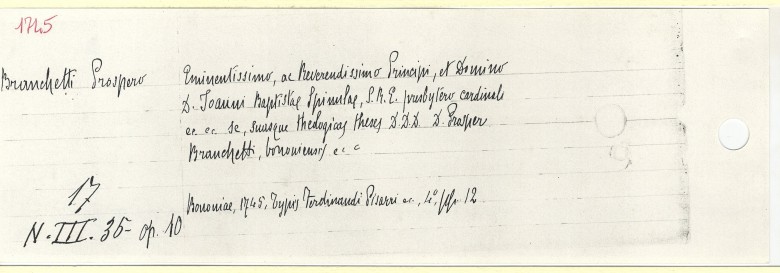 1745
Branchetti Prospero
Eminentissimo, ac Reverendissimo Principi, et Domino
D. Joanni Baptistae Spinulae, S.R.E. presbytero cardinali
ec ec se, suasque theologicas theses D.D.D. D. Prosper
Branchetti, bononiensis ec c
Bononiae, 1745, Typis Ferdinandi Pisarri ec., 4° pp. 12
17
N. III. 35 - op. 10